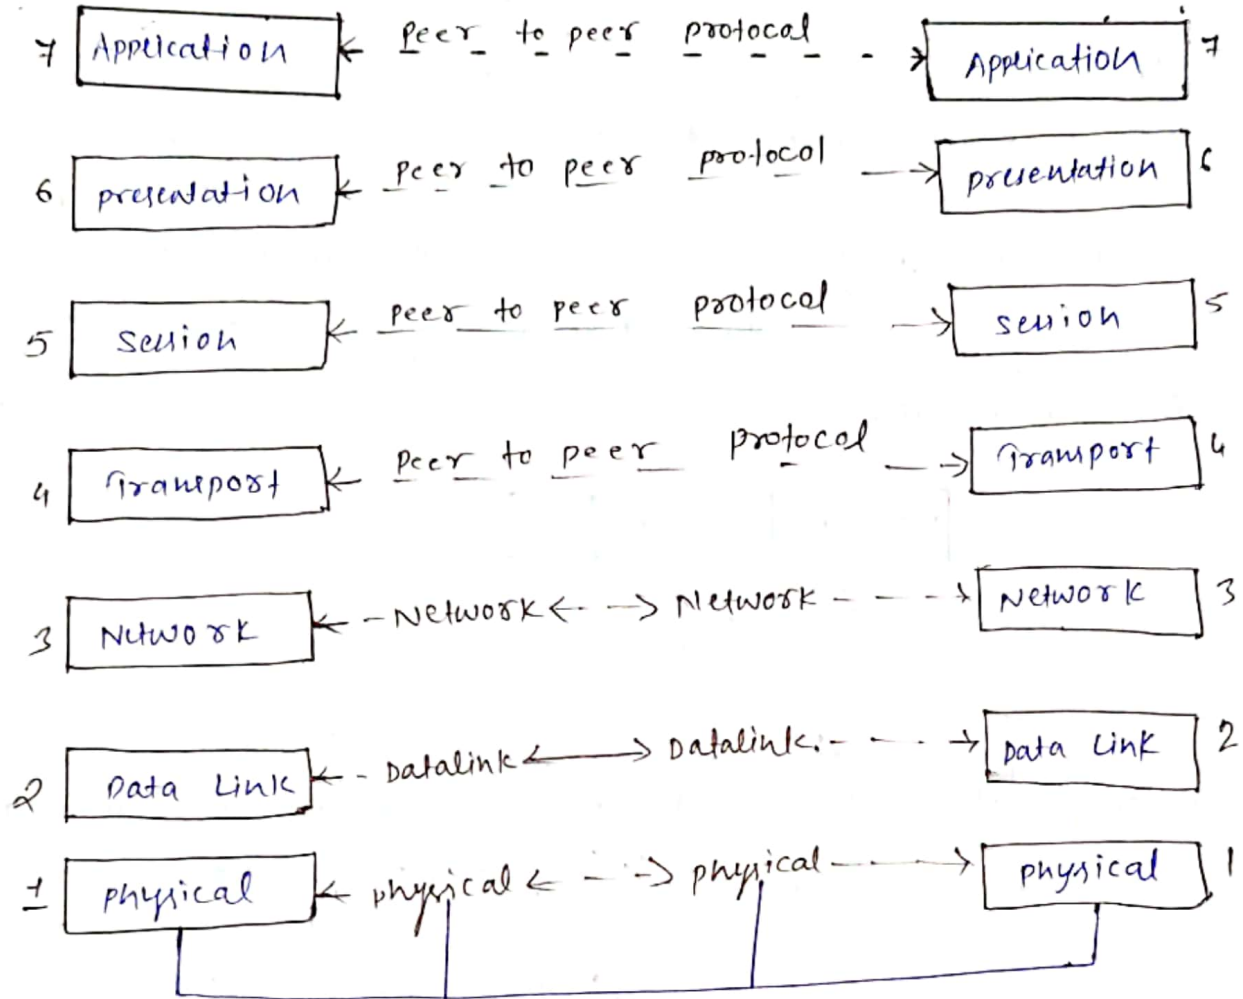 7 Application Peer to peer protocol Application 7
6 presentation Peer to peer protocol presentation 6
5 Session peer to peer protocol session 5
4 Transport Peer to peer protocol Transport 4
3 Network Network Network Network 3
2 Data Link Datalink Datalink. Data Link 2
1 physical physical physical physical 1